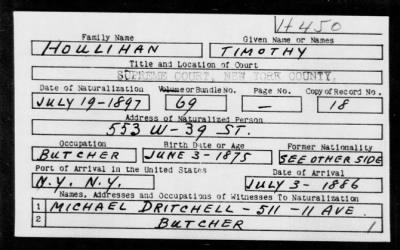 V+450
Family Name Given Name or Names
HOULIHAN TIMOTHY
Title and Location of Court
SUPREME COURT, NEW YORK COUNTY.
Date of Naturalization Volume or Bundle No. Page No. Copy of Record No.
JULY 19-1897 69 — 18
Address of Naturalized Person
553 W-39 ST.
Occupation Birth Date or Age Former Nationality
BUTCHER JUNE 3-1875 SEE OTHER SIDE
Port of Arrival in the United States Date of Arrival
N.Y. N.Y. JULY 3-1886
Names, Addresses and Occupations of Witnesses To Naturalization
1 MICHAEL DRITCHELL-511-11 AVE
2 BUTCHER 1